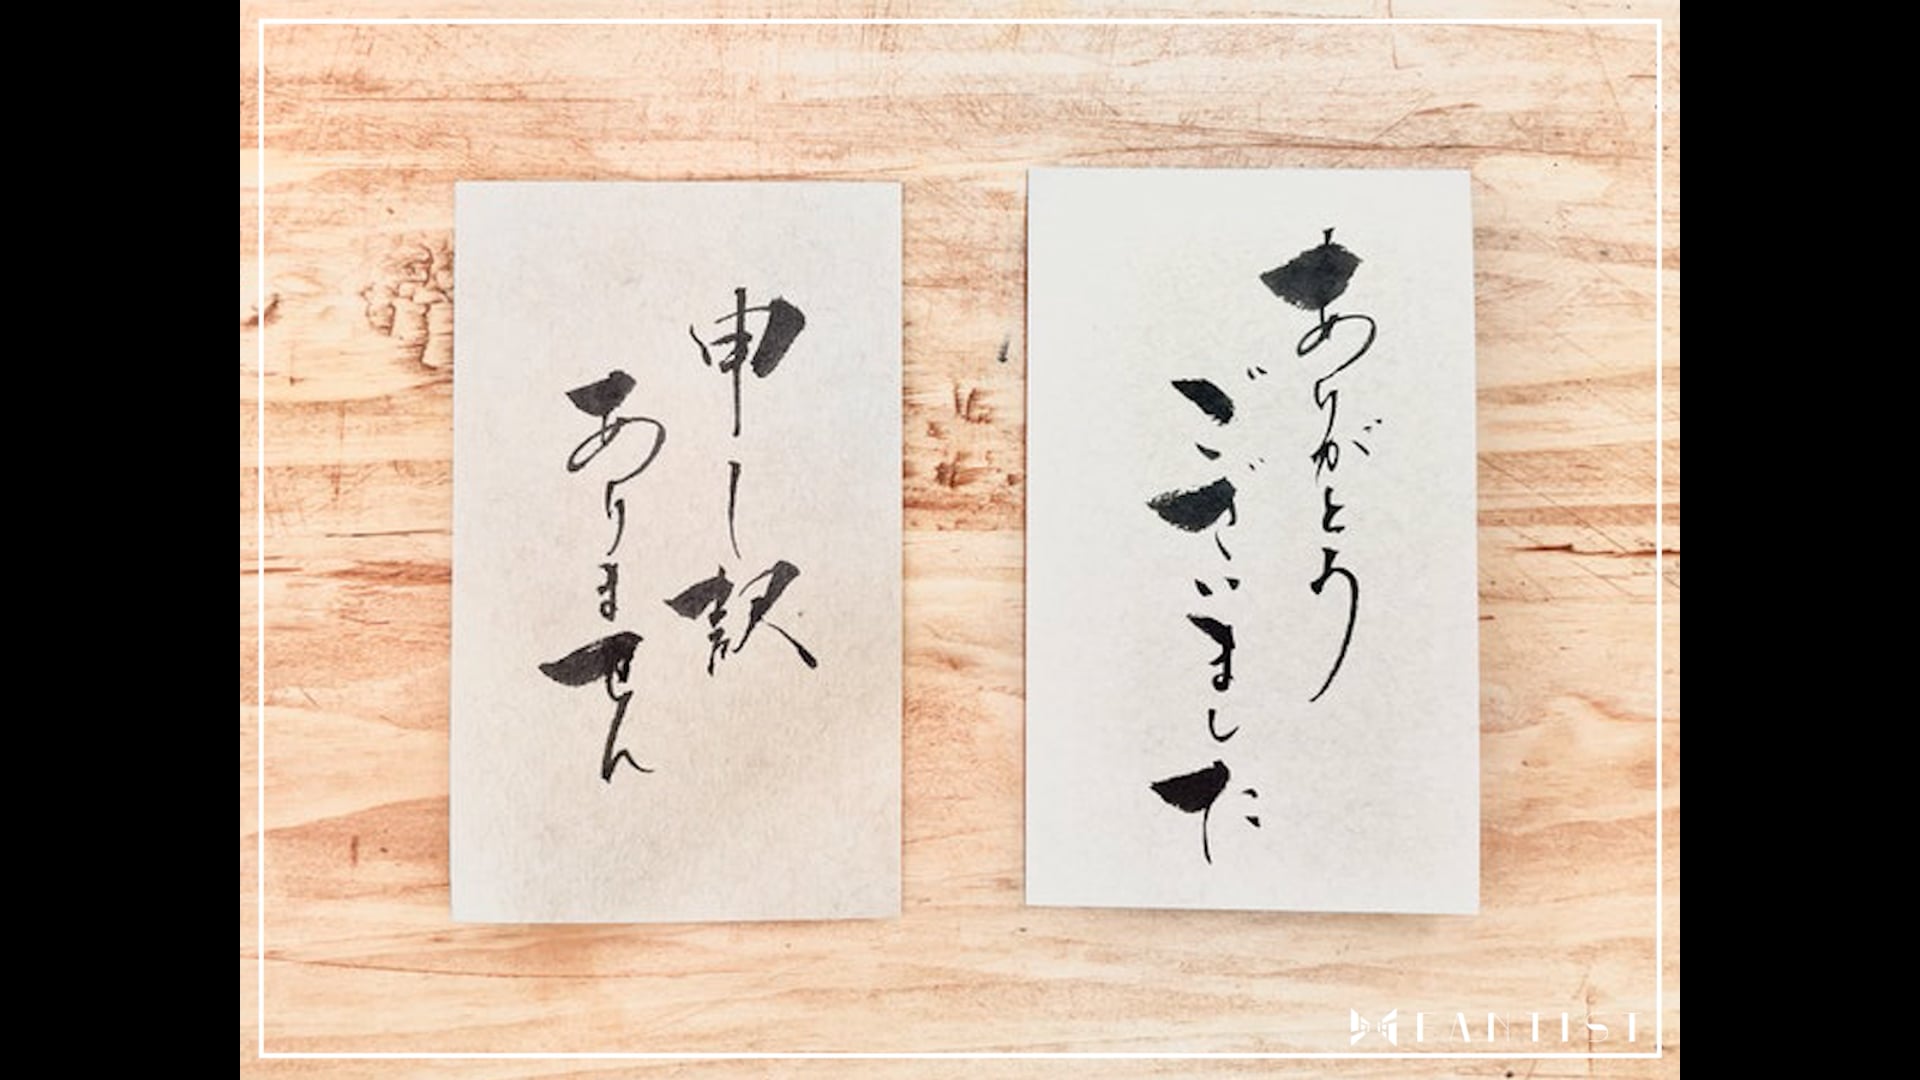 ありがとう
ございました
申し訳
ありません
FANTIST